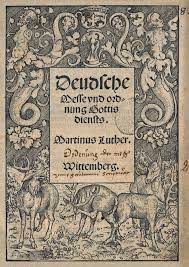 Deudsche
Messe vnd ord
nung Gottis
diensts.
Martinus Luther.
Ordenung
Wittemberg.